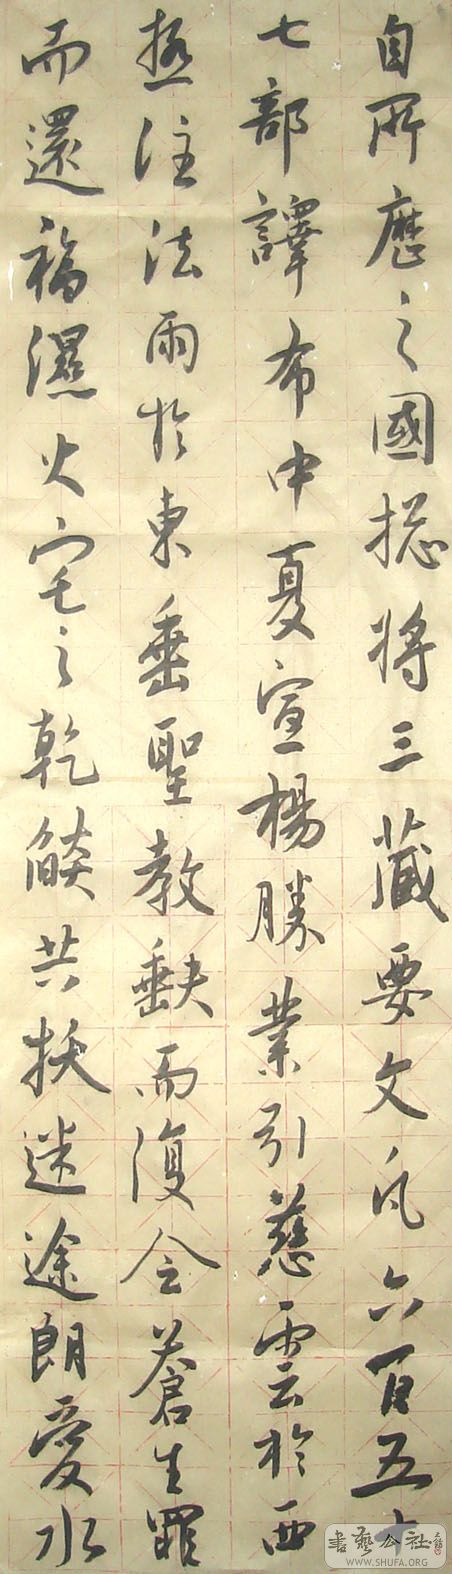 自所歷之國揔將三藏要文凡六百五十
七部譯布中夏宣楊勝業引慈雲於西
極注法雨於東垂聖教缺而復全蒼生罪
而還福濕火宅之乾燄共拔迷途朗愛水
書藝公社
WWW.SHUFA.ORG